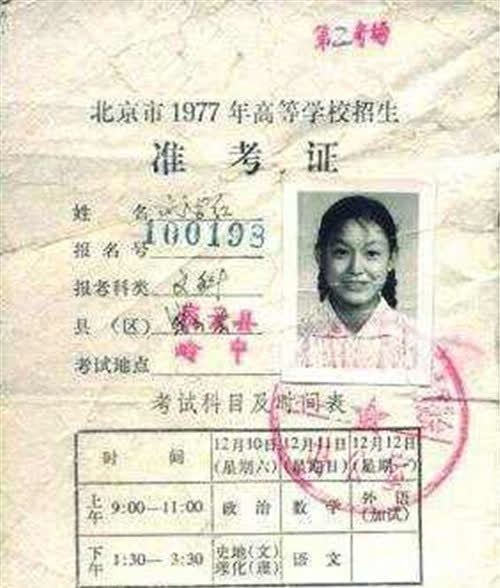 第二考场
北京市1977年高等学校招生
准考证
姓 名
报名号 100193
报考科类 文科
县(区) 县
考试地点 岭中
考试科目及时间表
时 间 12月10日(星期六) 12月11日(星期日) 12月12日(星期一)
上午 9:00—11:00 政治 数学 外语(加试)
下午 1:30—3:30 史地(文)理化(理) 语文